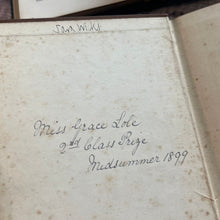 Miss Grace Lole
2nd Class Prize
Midsummer 1899